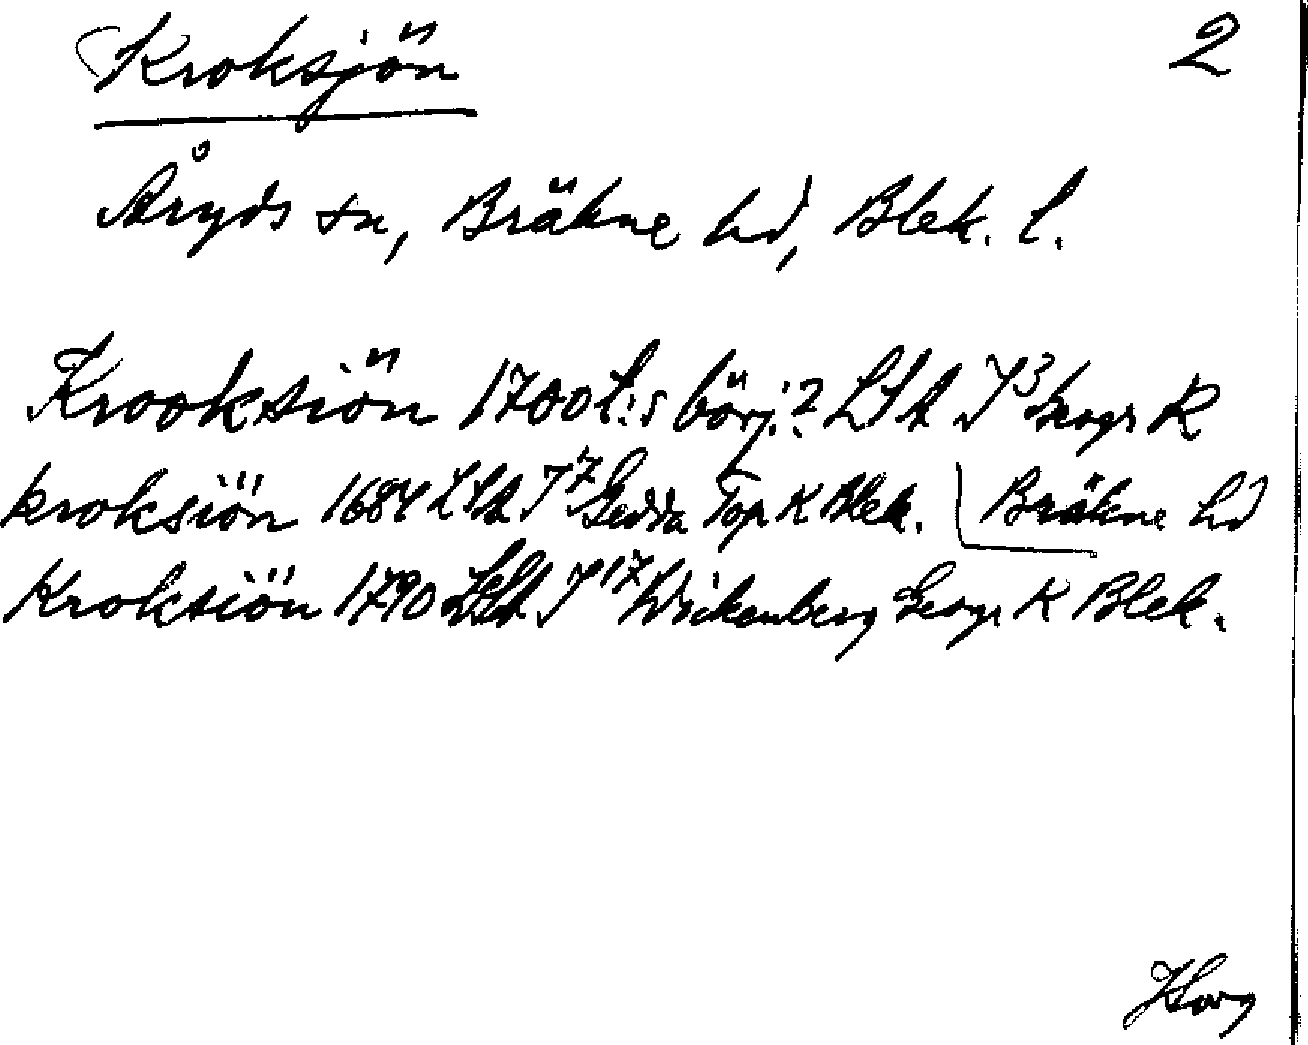 Kroksjön 2
Åryds sn, Bräkne hd, Blek. l.
Krooksiön 1700t:s börj.? LSA I 3 Geogr K
kroksiön 1684 LSA I 7 Gedda Top K Blek. Bräkne hd
Kroksiön 1790 LSA I 17 Wickenberg Geogr K Blek.